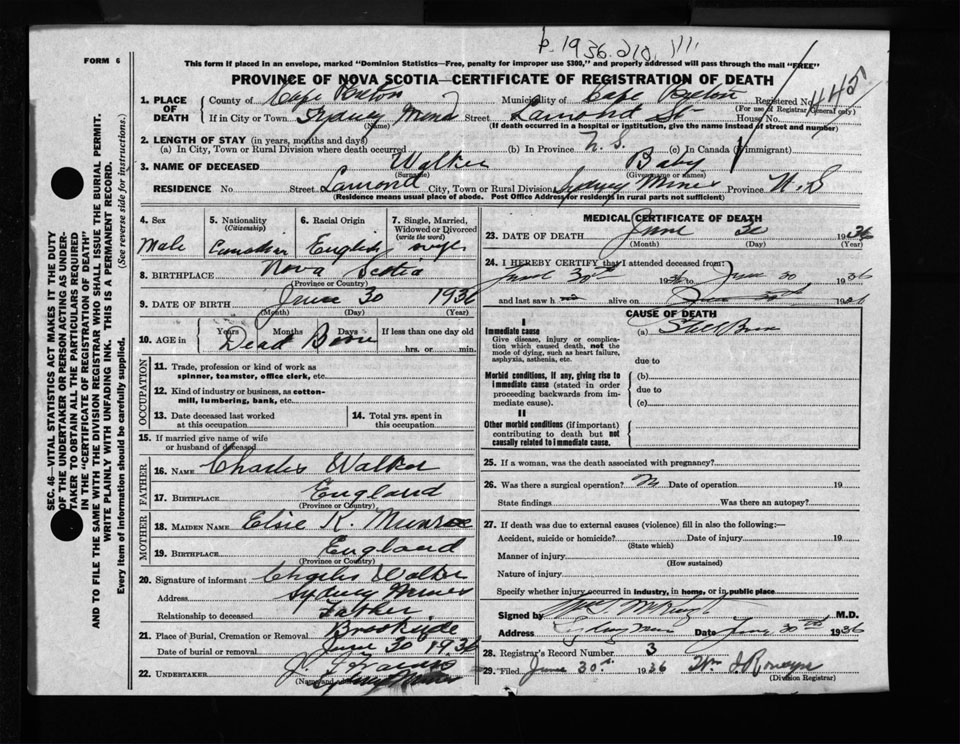 p. 1936.210.
FORM 6
This form if placed in an envelope, marked "Dominion Statistics—Free, penalty for improper use $300," and properly addressed will pass through the mail "FREE"
PROVINCE OF NOVA SCOTIA—CERTIFICATE OF REGISTRATION OF DEATH
1. PLACE OF DEATH
County of Cape Breton Municipality of Cape Breton Registered No. 445
(For use of Registrar General only)
If in City or Town Sydney Mines Street Lamond St House No.
(Name) (If death occurred in a hospital or institution, give the name instead of street and number)
2. LENGTH OF STAY (in years, months and days)
(a) In City, Town or Rural Division where death occurred (b) In Province N.S. (c) In Canada (if immigrant)
3. NAME OF DECEASED Walker Baby
(Surname) (Given name or names)
RESIDENCE No. Street Lamond City, Town or Rural Division Sydney Mines Province N.S
(Residence means usual place of abode. Post Office Address for residents in rural parts not sufficient)
4. Sex
Male
5. Nationality
(Citizenship)
Canadian
6. Racial Origin
English
7. Single, Married, Widowed or Divorced
(write the word)
8. BIRTHPLACE Nova Scotia
(Province or Country)
9. DATE OF BIRTH June 30 1936
(Month) (Day) (Year)
10. AGE in Years Months Days If less than one day old
Dead Born hrs. or min.
OCCUPATION
11. Trade, profession or kind of work as
spinner, teamster, office clerk, etc.
12. Kind of industry or business, as cotton-
mill, lumbering, bank, etc.
13. Date deceased last worked
at this occupation
14. Total yrs. spent in
this occupation
15. If married give name of wife
or husband of deceased
FATHER
16. NAME Charles Walker
17. BIRTHPLACE England
(Province or Country)
MOTHER
18. MAIDEN NAME Elsie K. Munroe
19. BIRTHPLACE England
(Province or Country)
20. Signature of informant Charles Walker
Address Sydney Mines
Relationship to deceased Father
21. Place of Burial, Cremation or Removal Brookside
Date of burial or removal June 30 1936
22. UNDERTAKER
(Name and Sydney Mines
MEDICAL CERTIFICATE OF DEATH
23. DATE OF DEATH June 30 1936
(Month) (Day) (Year)
24. I HEREBY CERTIFY that I attended deceased from:
June 30th 1936 to June 30 1936
and last saw h alive on June 30th 1936
CAUSE OF DEATH
I
Immediate cause (a) Still Born
Give disease, injury or complica-
tion which caused death, not the
mode of dying, such as heart failure,
asphyxia, asthenia, etc.
due to
Morbid conditions, if any, giving rise to
immediate cause (stated in order
proceeding backwards from im-
mediate cause).
(b)
due to
(c)
II
Other morbid conditions (if important)
contributing to death but not
causally related to immediate cause.
25. If a woman, was the death associated with pregnancy?
26. Was there a surgical operation? No Date of operation 19
State findings Was there an autopsy?
27. If death was due to external causes (violence) fill in also the following:—
Accident, suicide or homicide? Date of injury 19
(State which)
Manner of injury
(How sustained)
Nature of injury
Specify whether injury occurred in industry, in home, or in public place
Signed by M.D.
Address Sydney Mines Date June 30th 1936
28. Registrar's Record Number 3
29. Filed June 30th 1936 Wm J.
(Division Registrar)
SEC. 46—VITAL STATISTICS ACT MAKES IT THE DUTY
OF THE UNDERTAKER OR PERSON ACTING AS UNDER-
TAKER TO OBTAIN ALL THE PARTICULARS REQUIRED
IN THE "CERTIFICATE OF REGISTRATION OF DEATH"
AND TO FILE THE SAME WITH THE DIVISION REGISTRAR WHO SHALL ISSUE THE BURIAL PERMIT.
WRITE PLAINLY WITH UNFADING INK. THIS IS A PERMANENT RECORD.
Every item of information should be carefully supplied. (See reverse side for instructions.)